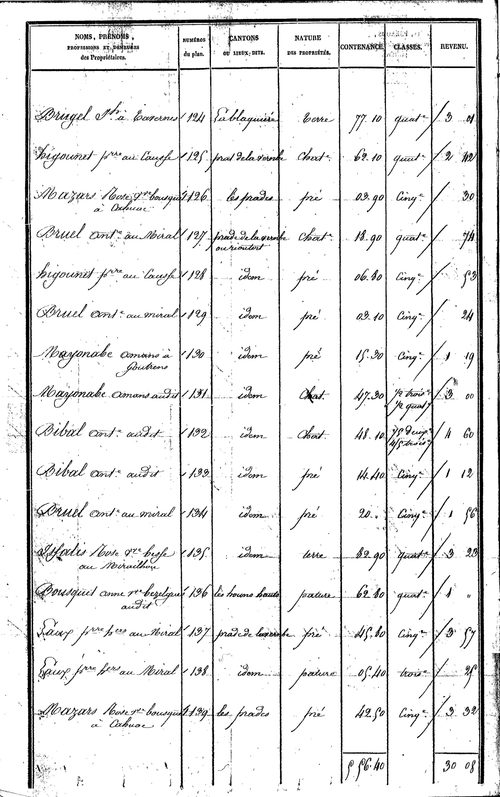 NOMS, PRÉNOMS, PROFESSIONS ET DEMEURES des Propriétaires. NUMÉROS du plan. CANTONS OU LIEUX-DITS. NATURE DES PROPRIÉTÉS. CONTENANCE. CLASSES. REVENU.
Brugel à Tavernes 124 La blaquiere Terre 77.10 quat.e 3 01
higounet pierre au Causse 125 prat de la Chat. 62.10 quat.e 2 42
Mazars Rose v.ve bousquet 126 les prades pré 03.90 Cinq.e 30
à Cahuac
Bruel ant.e au Miral 127 prade de la Chat. 18.90 quat.e 74
higounet pierre au Causse 128 idem pré 06.80 Cinq.e 53
Bruel ant.e au miral 129 idem pré 03.10 Cinq.e 24
Mayonabe amans à 130 idem pré 15.30 Cinq.e 1 19
Mazonabe amans audit 131 idem Chat. 47.30 1/2 trois.e 3 00
1/2 quat.e
Bibal ant.e audit 132 idem Chat. 48.10 4 60
4/5 trois.e
Bibal ant.e audit 133 idem pré 14.40 Cinq.e 1 12
Bruel ant.e au miral 134 idem pré 20. „ Cinq.e 1 56
Rose v.ve 135 idem terre 82.90 quat.e 3 23
Bousquet anne v.ve 136 les houns hauts pature 62.80 quat.e 1 „
audit
pierre au Miral 137 prade de pré 45.80 Cinq.e 3 57
pierre au Miral 138 idem pature 05.40 trois.e 25
Mazars Rose v.ve bousquet 139 les prades pré 42.50 Cinq.e 3 32
à Cahuac
5 56.40 30 08